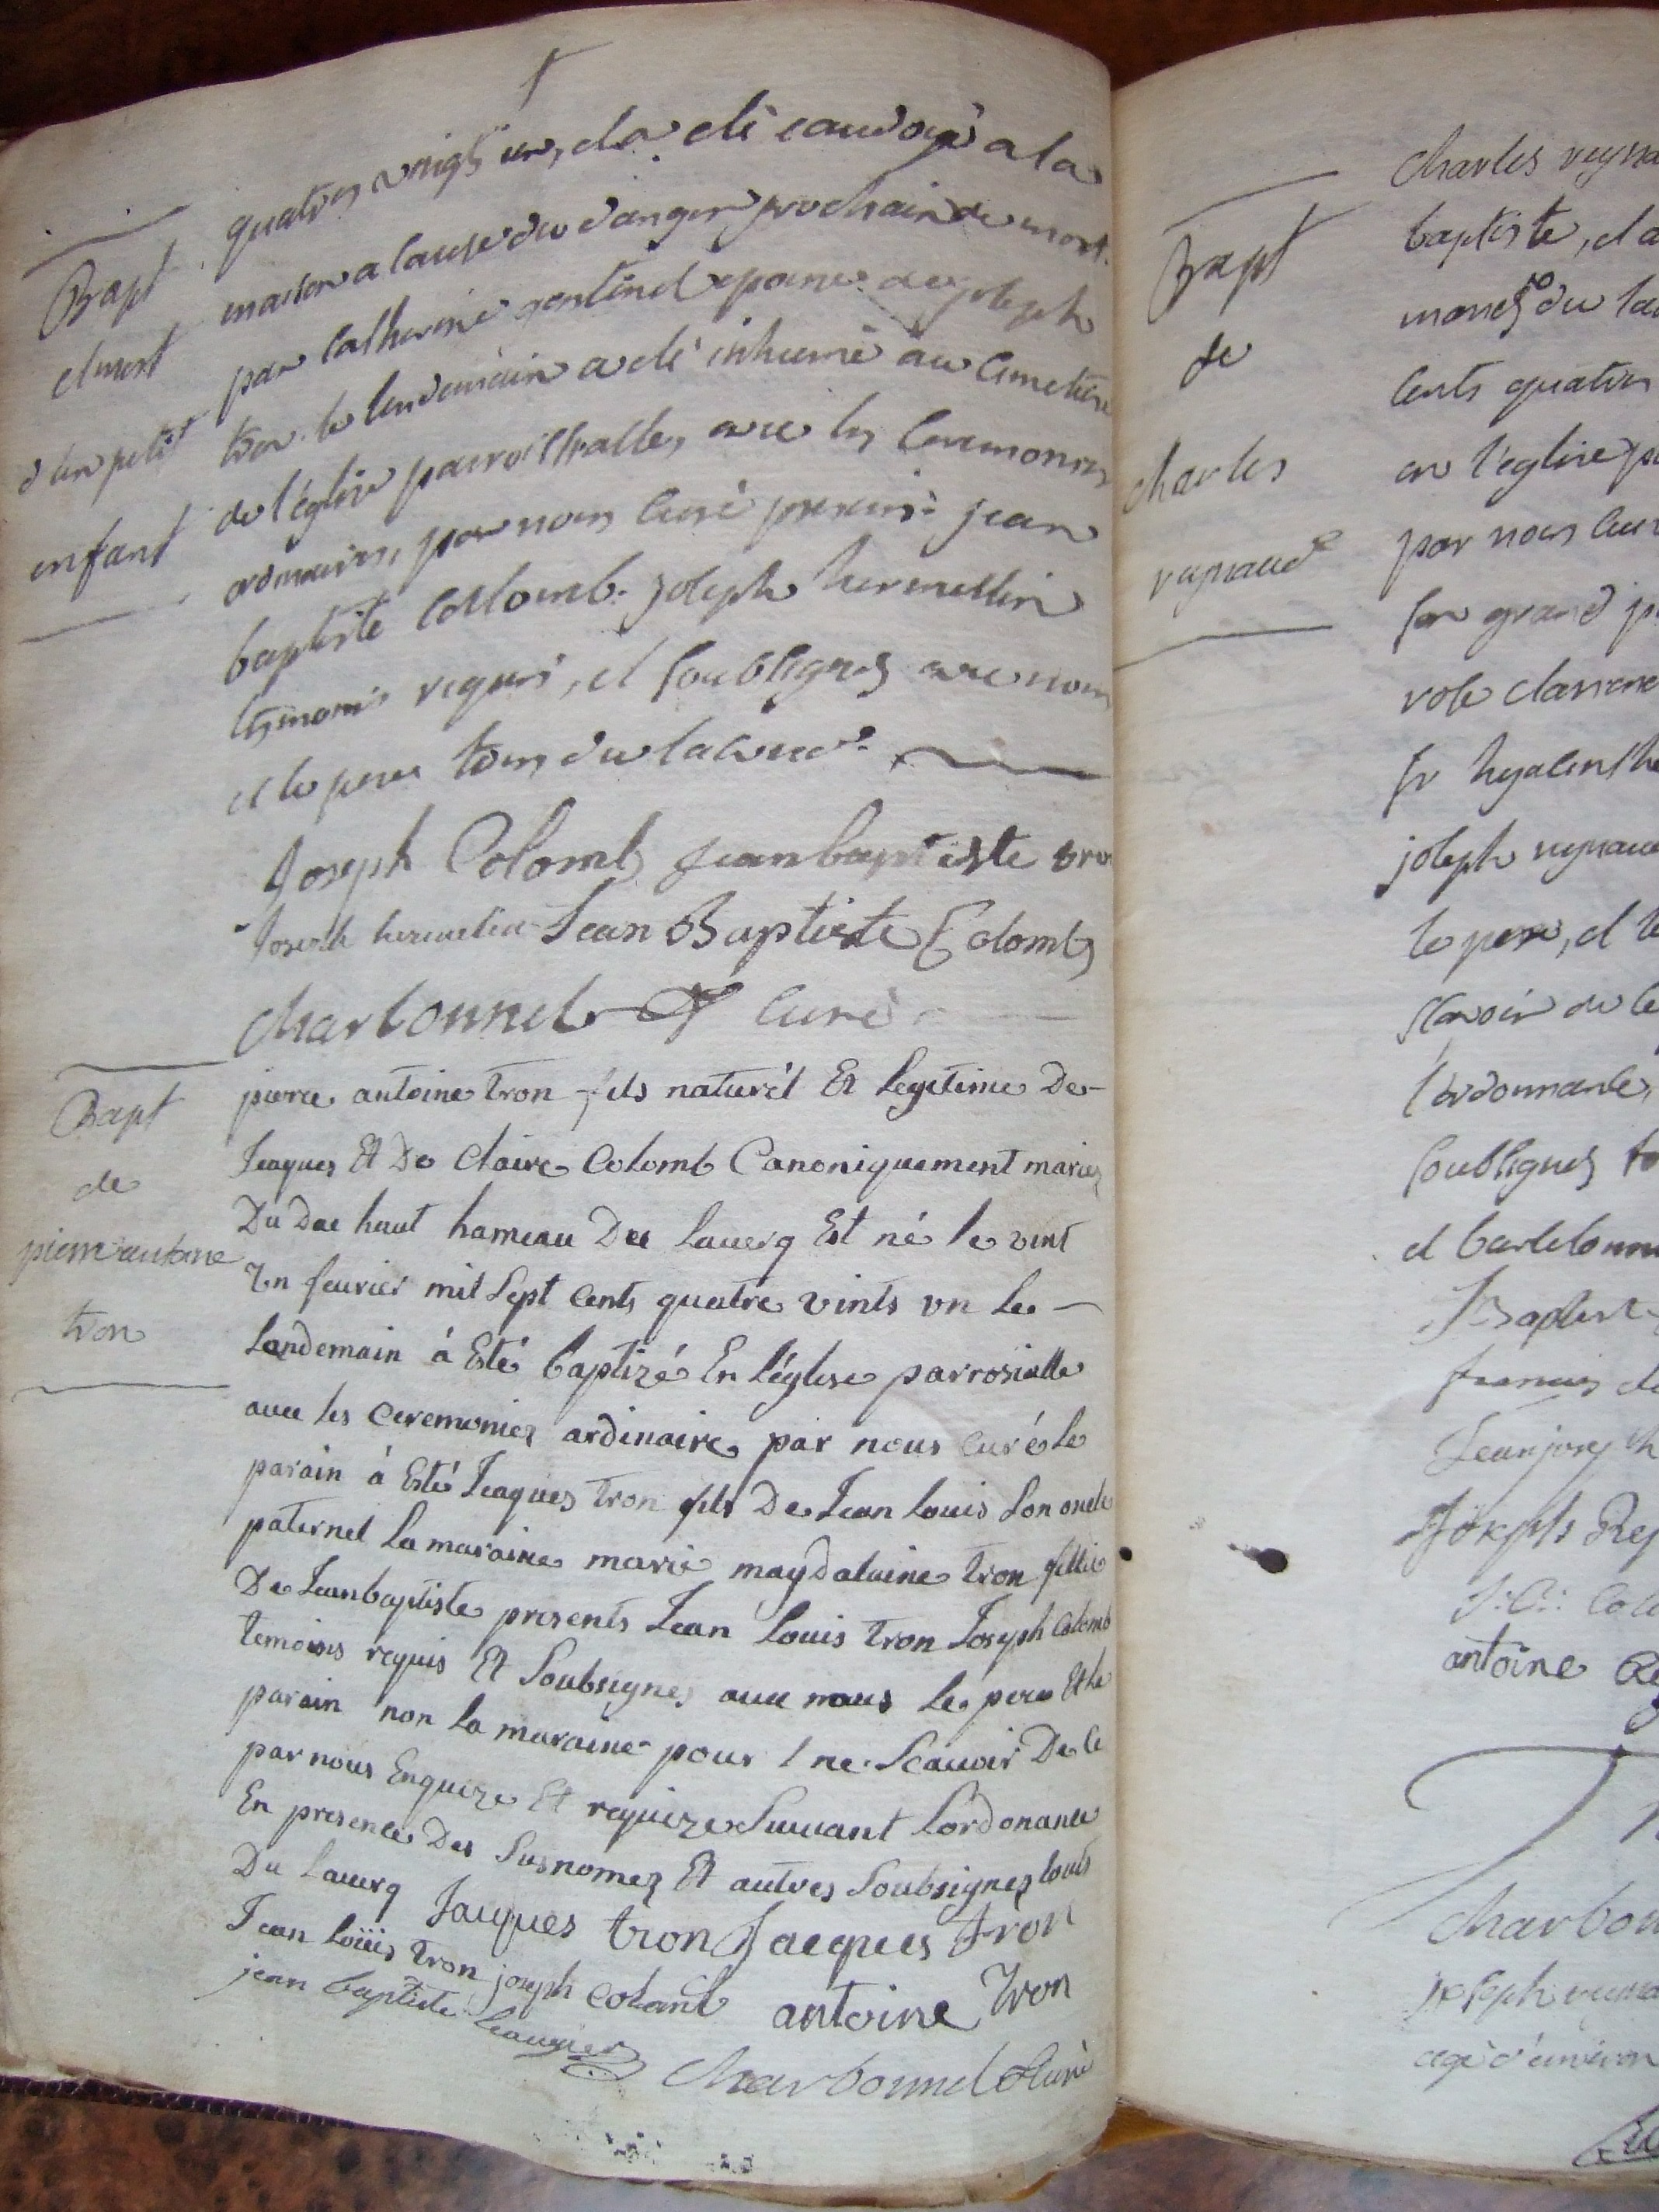 quatres vingts un, et a été eaudoyé a la
maison a cause du danger prochain de mort
par Catherine gentinet epouse de joseph
tron le lendemain a eté inhumé au Cimetiere
de l'église parroissialle, avec les Ceremonies
ordinaires, par nous Curé presens jean
baptiste Collomb joseph hermellin
temoins requis, et soubsignés avec nous
et le pere tous du lavercq
Joseph Colomb jean baptiste tron
Joseph hermelin Jean Baptiste Colomb
Charbonnel Curé
Bapt
et mort
d'un petit
enfant
pierre antoine tron fils naturél Et Legetime De
Jeaques Et De Claire Colomb Canoniquement mariez
Du Dac haut hameau Du Lauerq Est né le vint
Un feurier mil Sept Cents quatre vints un Le
Landemain á Esté baptizé En léglese parrosialle
auec les ceremoniez ardinaire par nous Curé Le
parain á Esté Jeaques tron fils De Jean Louis Son oncle
paternel La maraine marie magdalaine tron fillie
De Jeanbaptiste presents Jean Louis tron Joseph Colomb
temoins requis Et Soubsignez auec nous Le pere Et Le
parain non La maraine pour ne Scauoir De Ce
par nous Enquize Et requize Suiuant Lordonance
En presence Des Susnomez Et autres Soubsignez touts
Du Lauerq Jacques tron Jacques tron
Jean loüis tron joseph colomb antoine Tron
jean baptiste Leaugier Charbonnel Curé
Bapt
de
pierre antoine
tron
Bapt
de
charles
reynaud
Charles reyna
baptiste, et a
mariés du la
Cents quatres
en l'eglise pa
par nous Curé
son grand p
rose
fr hyacinthe
joseph reynau
le pere, et le
sçavoir de ce
l'ordonnance,
soubsignés to
et
J Baptiste
francois
Jean joseph
Joseph Rey
antoine
Charbon
joseph reyna
agé d'environ